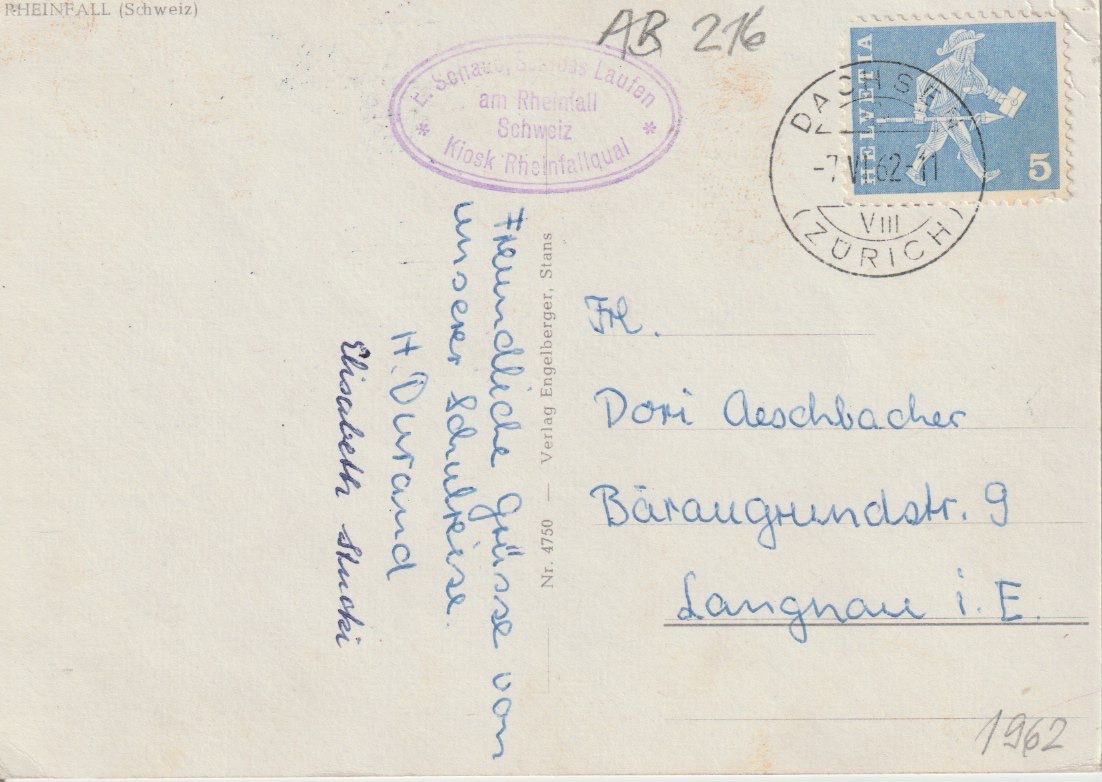 RHEINFALL (Schweiz)
AB 216
E. Schaad, Schloss Laufen
am Rheinfall
Schweiz
* Kiosk Rheinfallquai *
HELVETIA
5
DACHSEN
-7.VI.62-11
VIII
(ZÜRICH)
Freundliche Grüsse von
unserer Schulreise.
H. Durand
Elisabeth Stucki
Nr. 4750 — Verlag Engelberger, Stans
Frl.
Dori Aeschbacher
Bäraugrundstr. 9
Langnau i. E.
1962